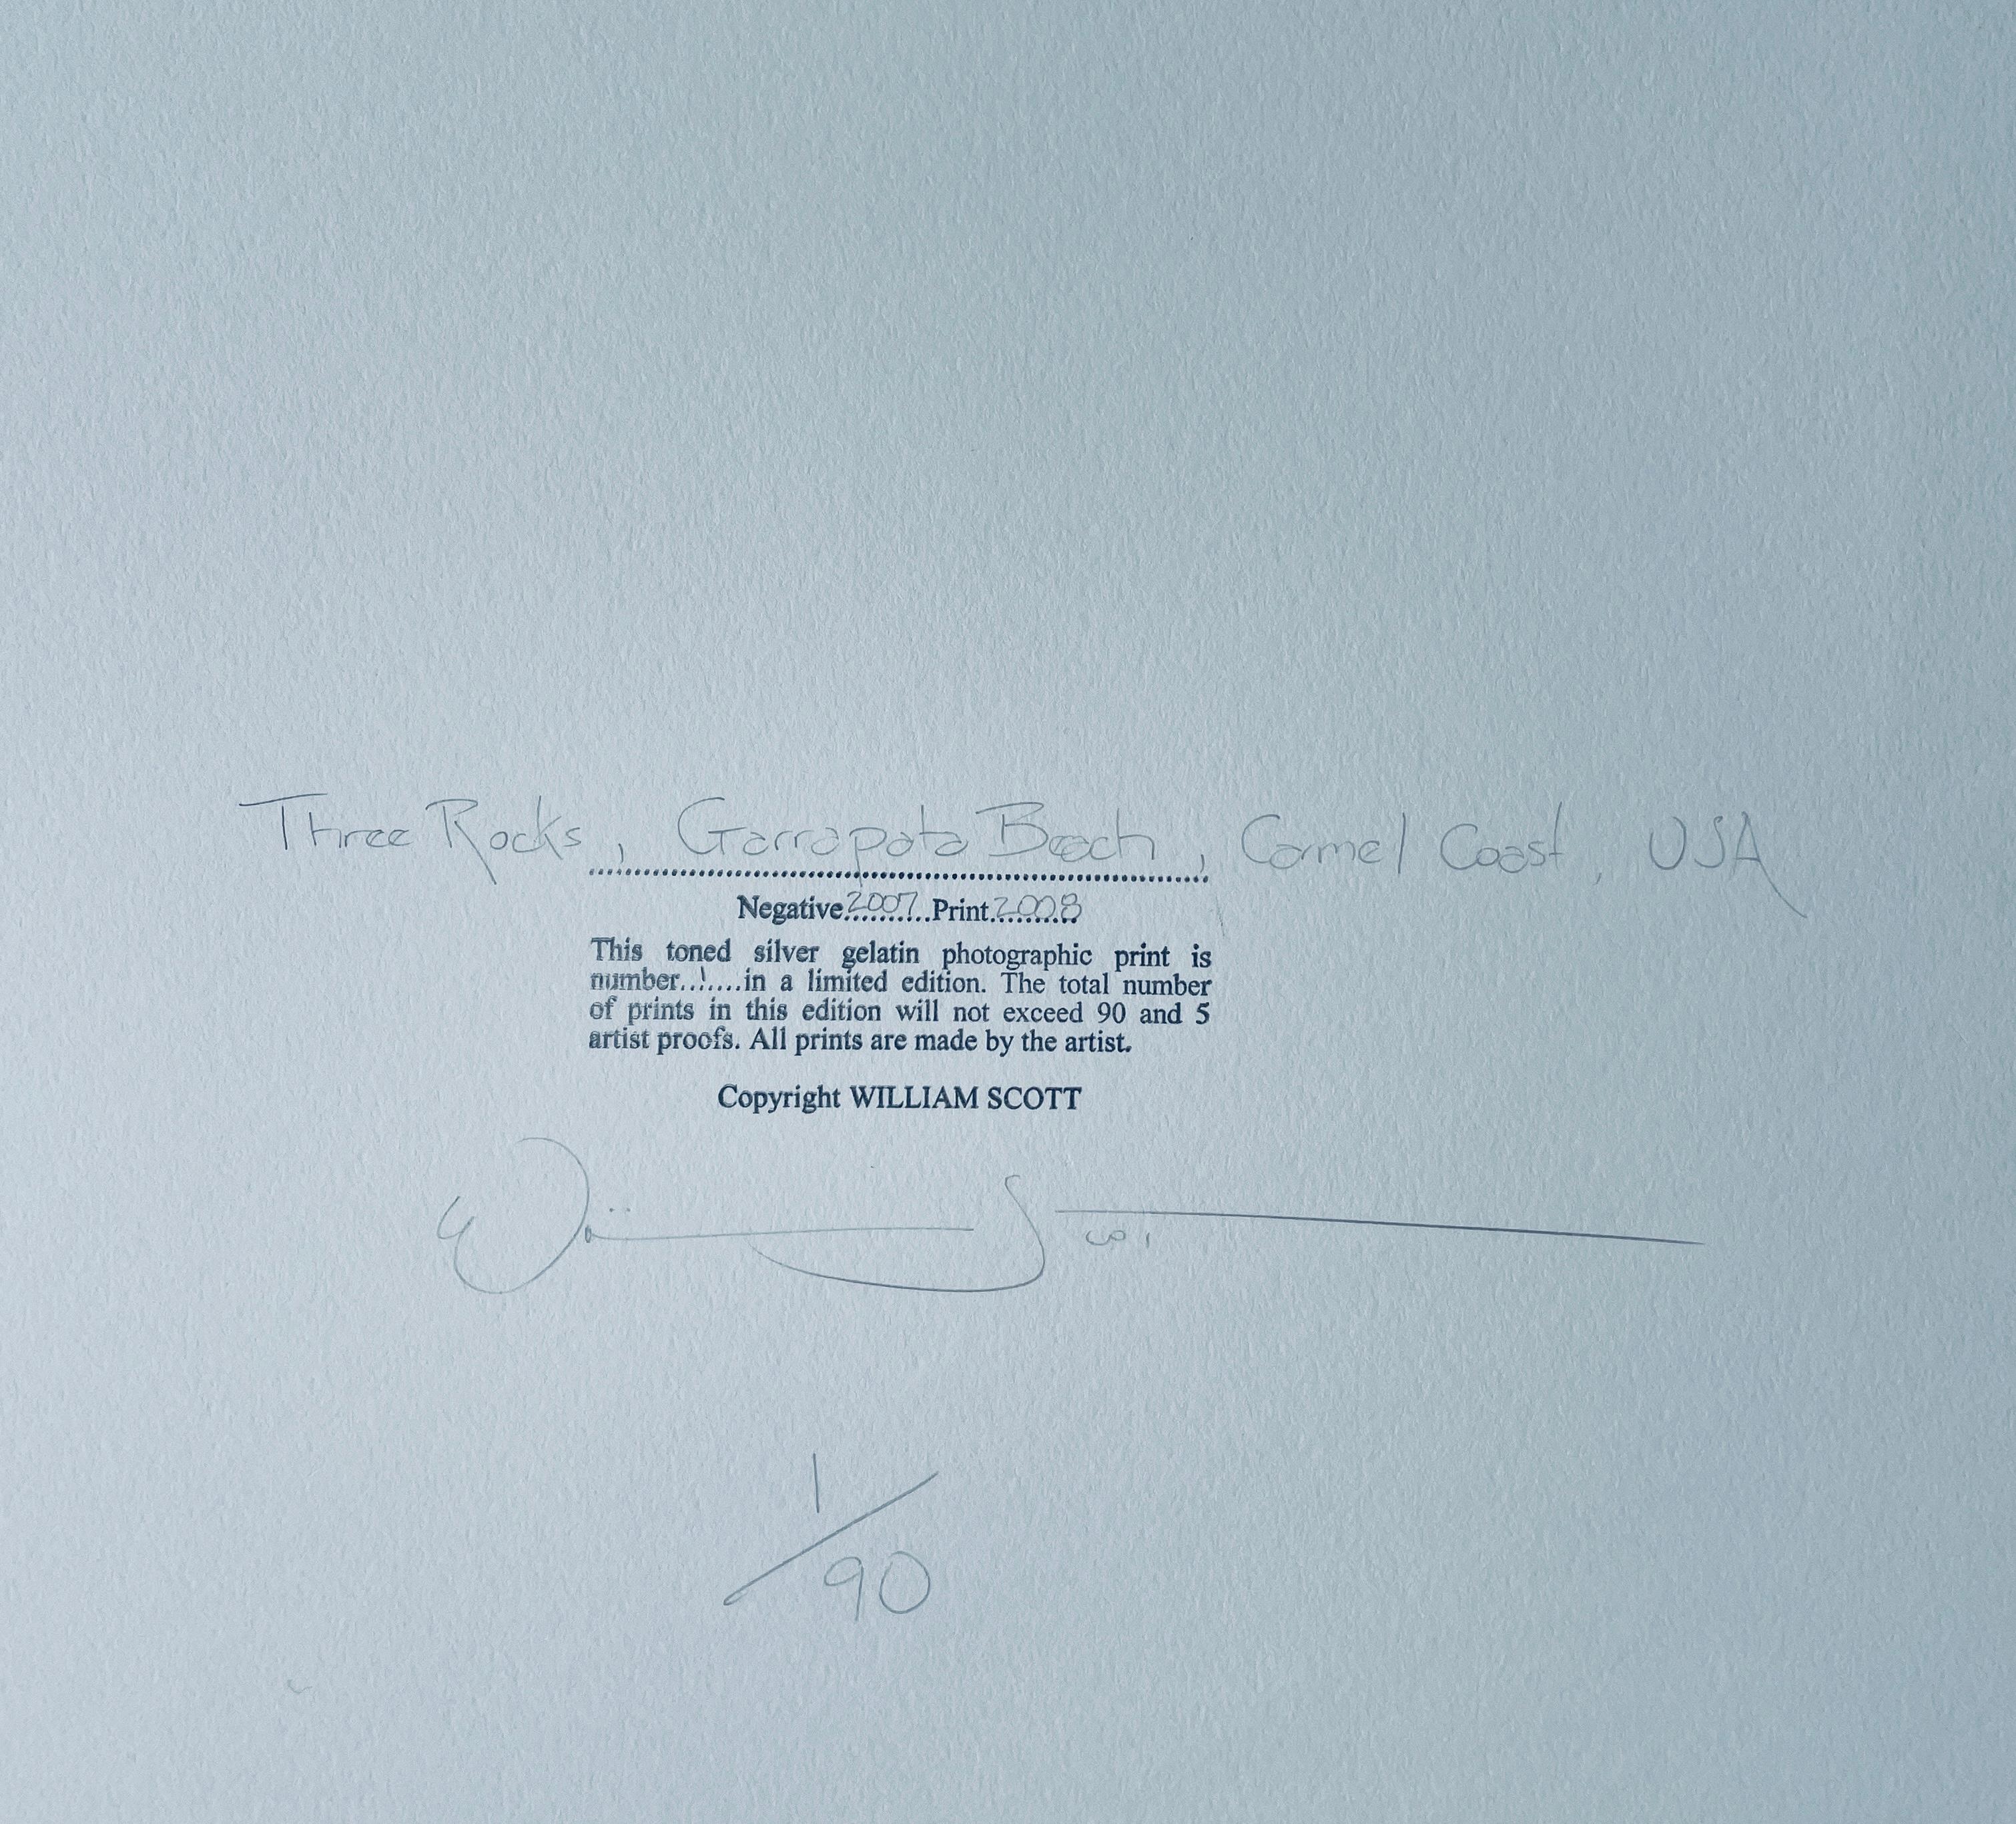 Three Rocks, Garrapata Beach, Carmel Coast, USA
Negative 2007 Print 2008
This toned silver gelatin photographic print is
number..1....in a limited edition. The total number
of prints in this edition will not exceed 90 and 5
artist proofs. All prints are made by the artist.
Copyright WILLIAM SCOTT
1/90